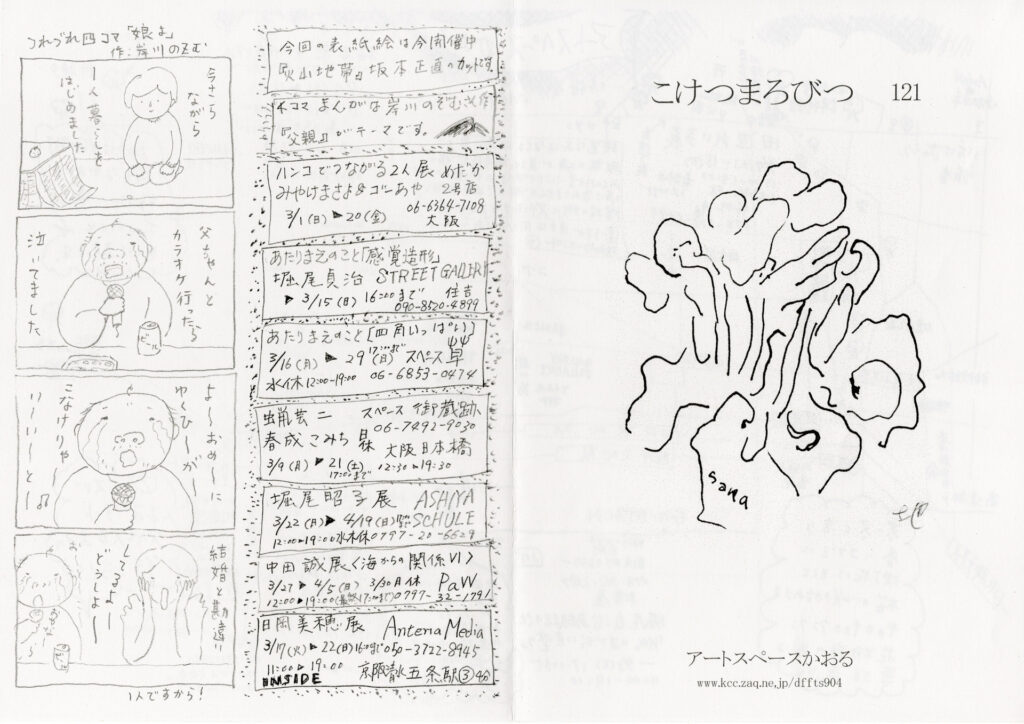 つれづれ四コマ「娘よ」
作:岸川のぞむ
今さら
ながら
一人暮らしを
はじめました
父ちゃんと
カラオケ行ったら
泣いてました
ビール
よ〜おめ〜に
ゆくひ〜が
こなけりゃ
い〜い〜と〜♪
結婚と勘違い
してるよ
どうしよー
1人ですから!
今回の表紙絵は今開催中
『火山地帯』坂本正直のカットです。
4コマまんがは岸川のぞむさん作
『父親』がテーマです。
ハンコでつながる2人展 めだか
みやけまさよ&ゴトーあや 2号店
06-6364-7108
3/1(日)▶20(金) 大阪
あたりまえのこと「感覚造形」
堀尾貞治 STREET GALLERY
▶3/15(日)16:00まで 住吉
090-8520-4899
あたりまえのこと[四角いっぱい]
3/16(月)▶29(日)17:00まで スペース草
水休12:00-19:00 06-6853-0474
蝋芸二 スペース御蔵跡
06-7492-9030
春成こみち 大阪日本橋
3/9(月)▶21(土)12:30▶19:30
17:00まで
堀尾昭子展 ASHIYA
3/22(日)▶4/19(日) SCHULE
12:00▶19:00水木休0797-20-6629
中田誠展〈海からの関係VI〉
3/27▶4/5(日) 3/30月休 PaW
12:00▶19:00(最終17:00まで)0797-32-1791
日岡美穂展 Antena Media
3/17(火)▶22(日)16:00まで050-3722-8945
11:00▶19:00 京阪清水五条駅③4分
INSIDE
こけつまろびつ 121
sana
地
アートスペースかおる
www.kcc.zaq.ne.jp/dffts904